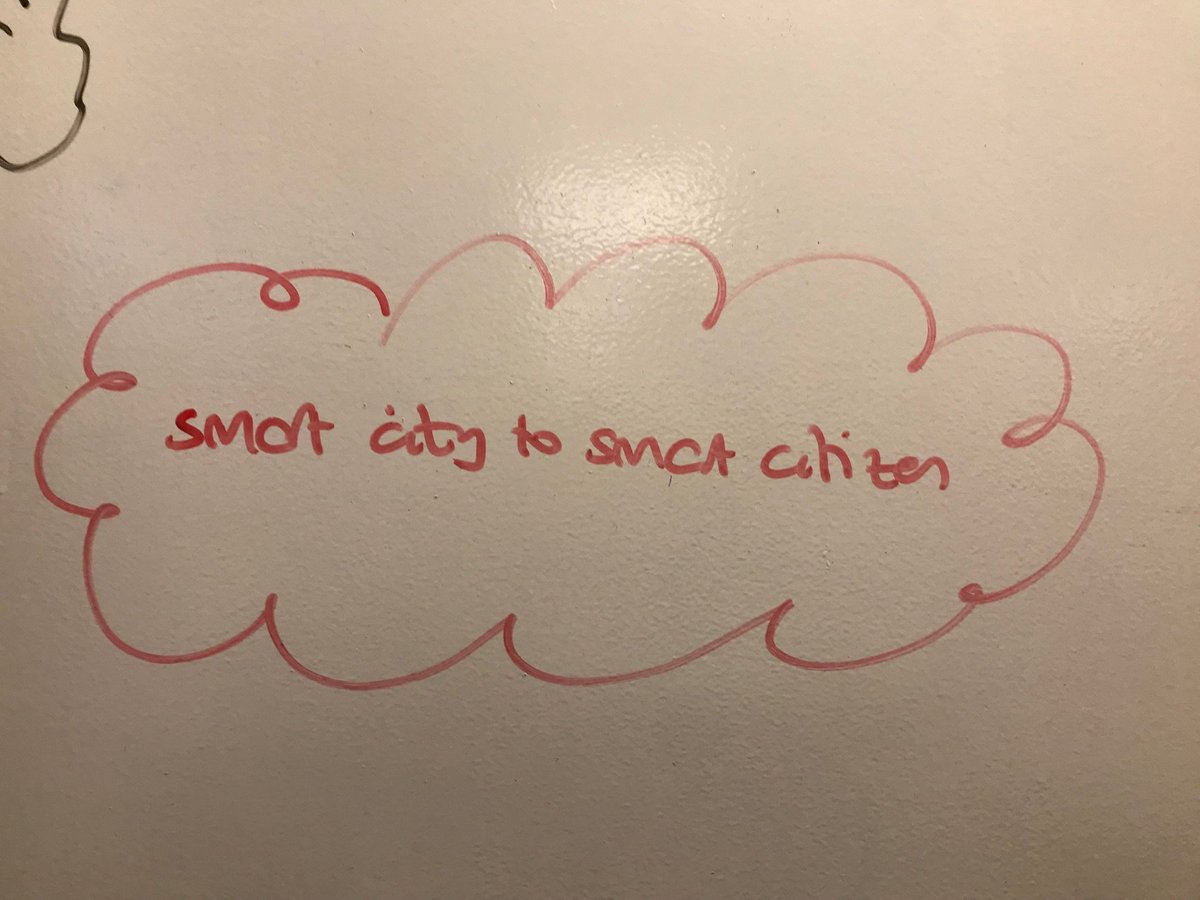 smart city to smart citizen